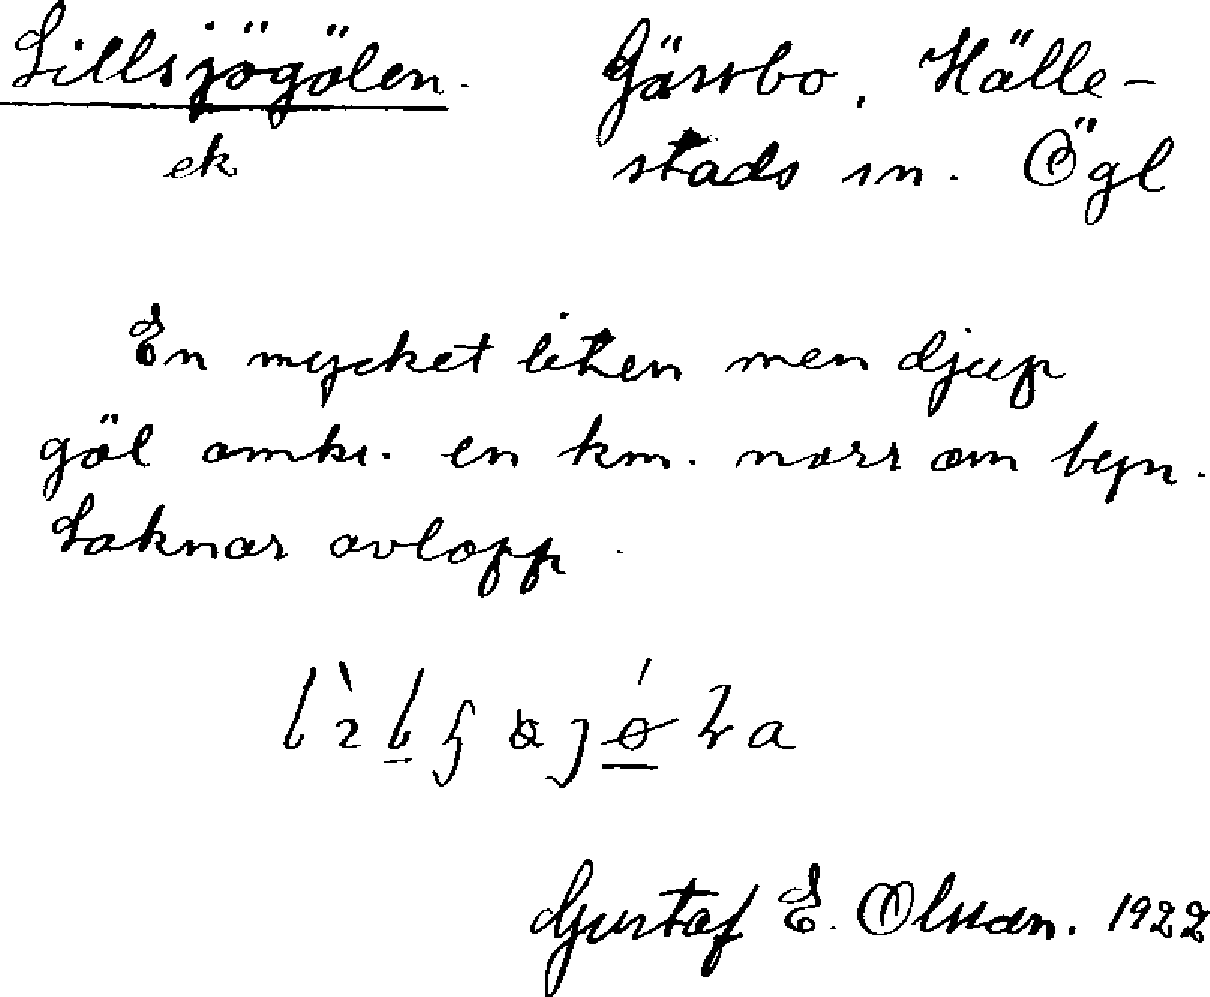 Lillsjögölen. Hälle-
ek stads sn. Ögl
En mycket liten men djup
göl omkr. en km. norr om byn.
Saknar avlopp.
Gustaf E. Olsson. 1922